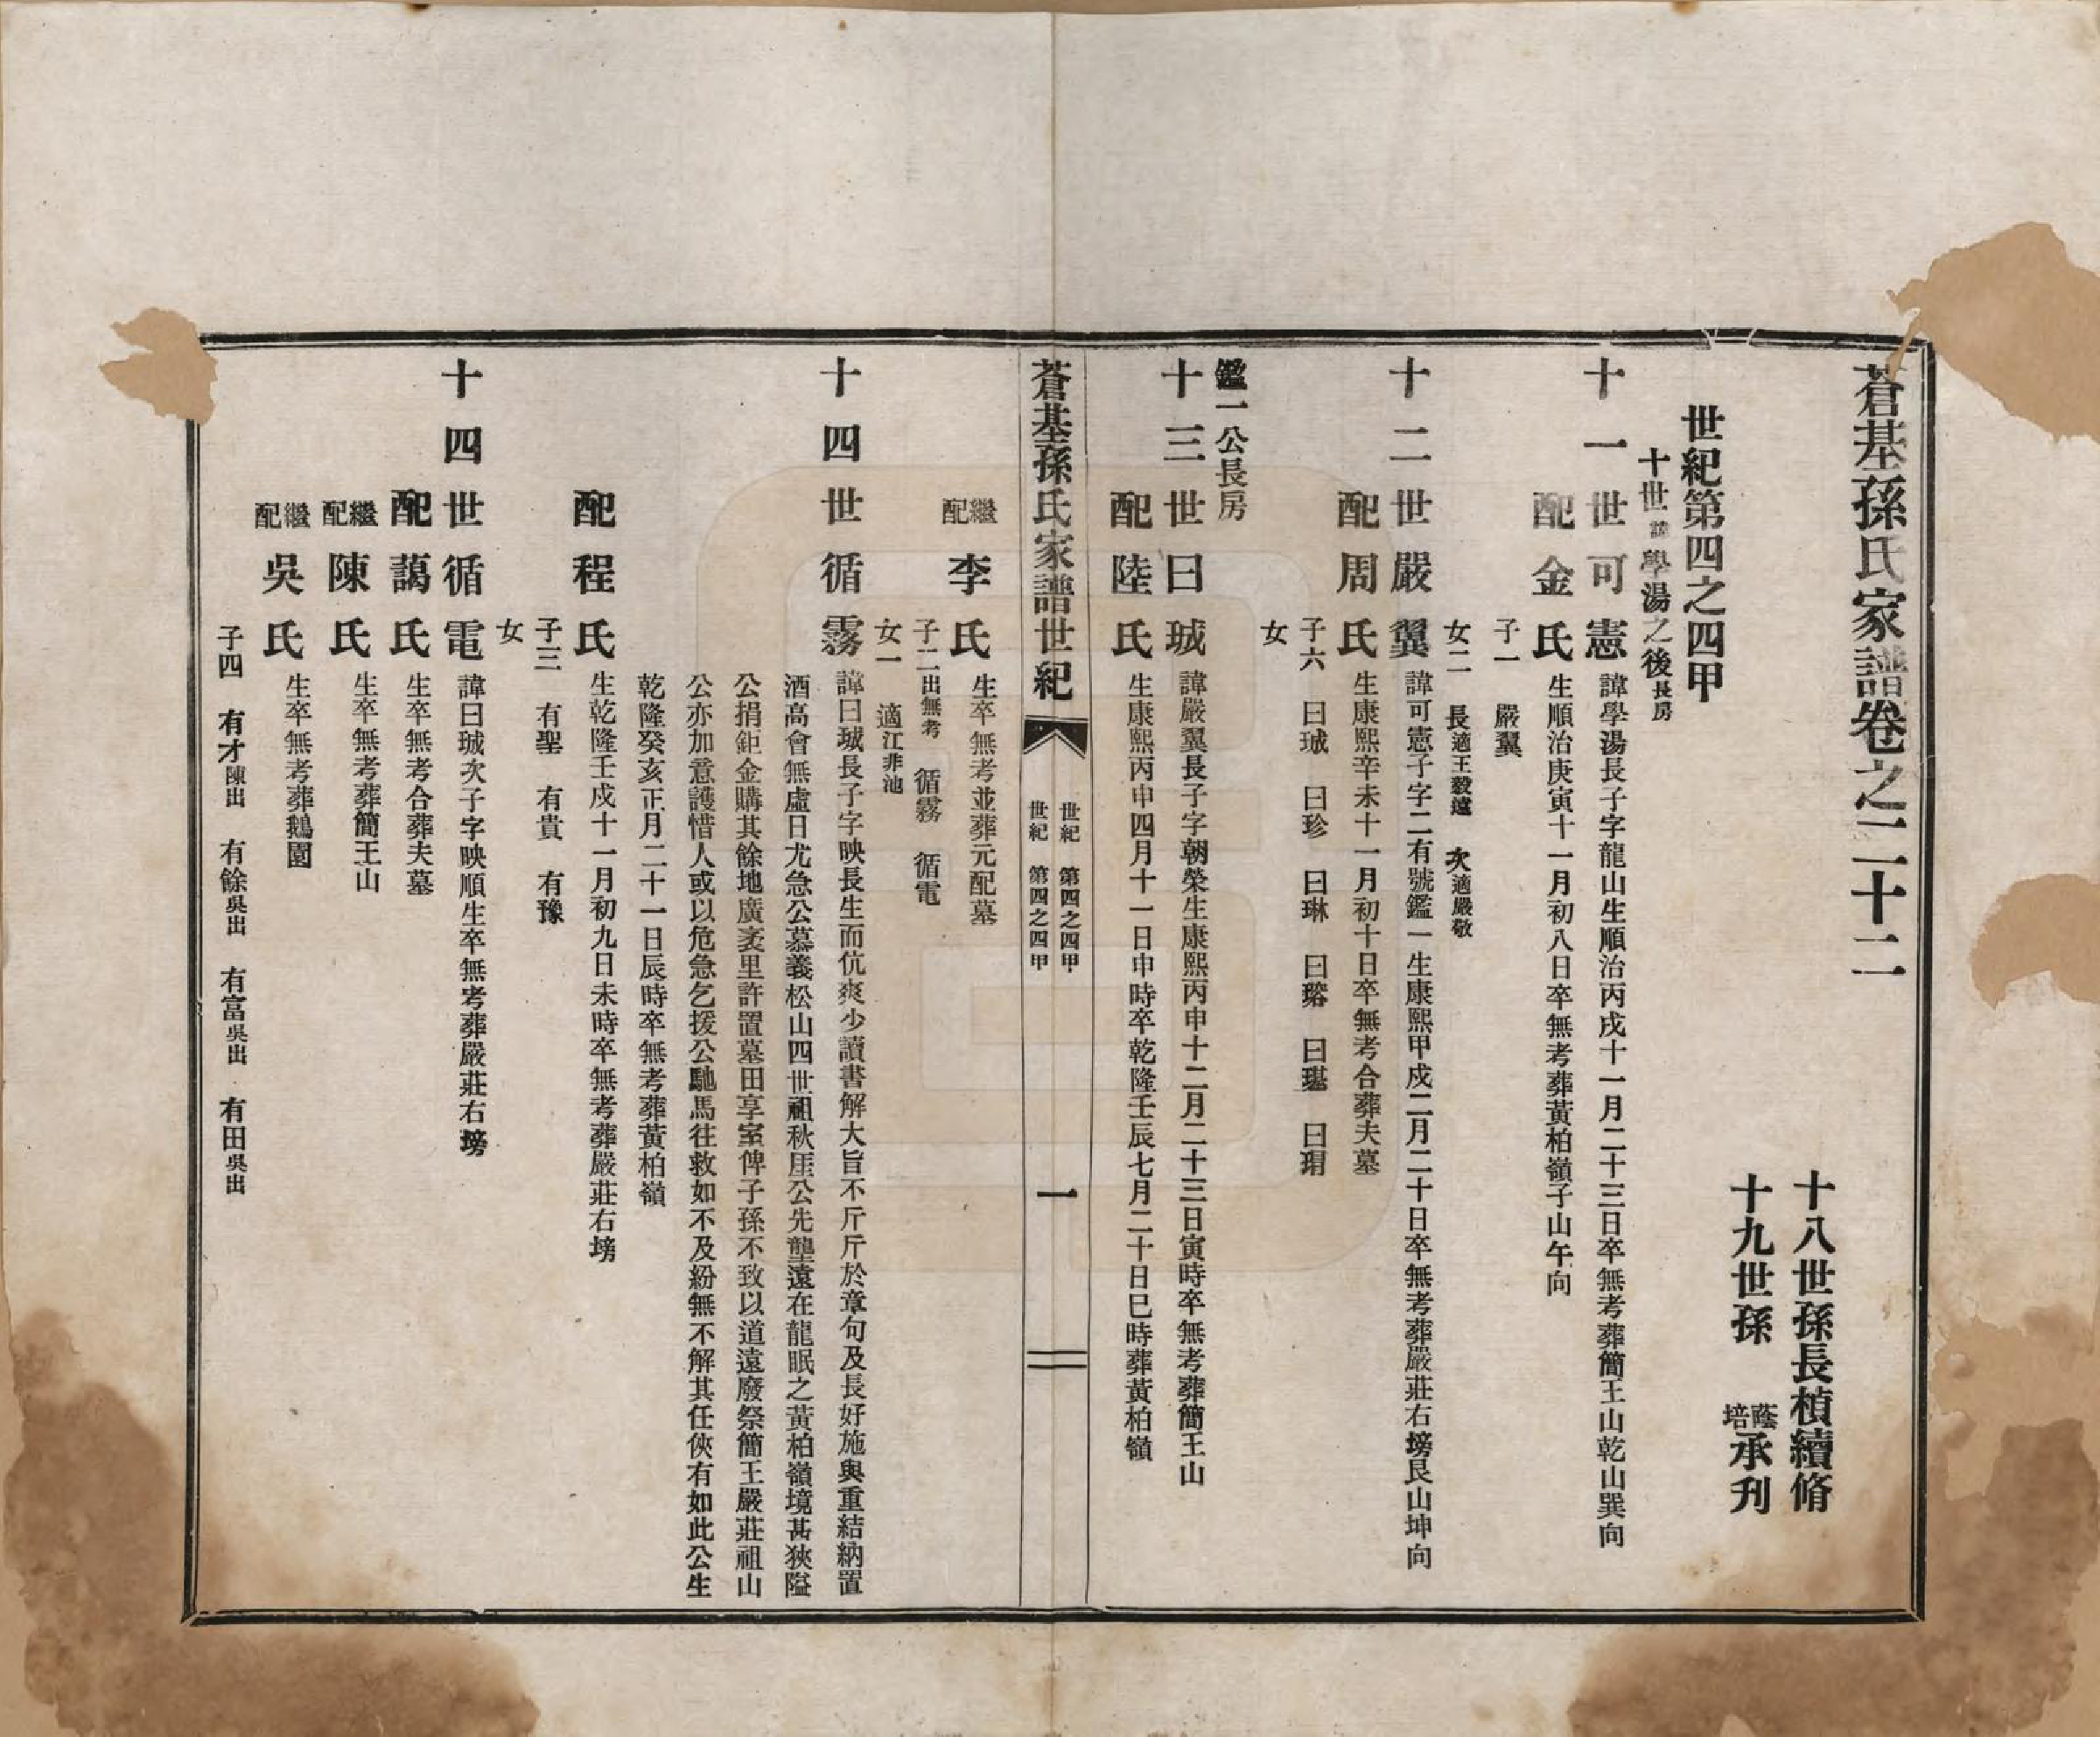 蒼基孫氏家譜卷之二十二
十八世孫長楨續脩
十九世孫 蔭培承刊
世紀第四之四甲
十世諱學湯之後長房
十一世可憲 諱學湯長子字龍山生順治丙戌十一月二十三日卒無考葬簡王山乾山巽向
配金氏 生順治庚寅十一月初八日卒無考葬黃柏嶺子山午向
子一 嚴翼
女二 長適王毅遠 次適嚴敬
十二世嚴翼 諱可憲子字二有號鑑一生康熙甲戌二月二十日卒無考葬嚴莊右塝艮山坤向
配周氏 生康熙辛未十一月初十日卒無考合葬夫墓
子六 曰珹 曰珍 曰琳 曰瑢 曰璂 曰瑁
女
鑑一公長房
十三世曰珹 諱嚴翼長子字朝榮生康熙丙申十二月二十三日寅時卒無考葬簡王山
配陸氏 生康熙丙申四月十一日申時卒乾隆壬辰七月二十日巳時葬黃柏嶺
蒼基孫氏家譜世紀
世紀 第四之四甲
世紀 第四之四甲
一
繼配李氏 生卒無考並葬元配墓
子二出無考 循霧 循電
女一 適江非池
十四世循霧 諱曰珹長子字映長生而伉爽少讀書解大旨不斤斤於章句及長好施與重結納置
酒高會無虛日尤急公慕義松山四世祖秋厓公先壟遠在龍眠之黃柏嶺境甚狹隘
公捐鉅金購其餘地廣袤里許置墓田享室俾子孫不致以道遠廢祭簡王嚴莊祖山
公亦加意護惜人或以危急乞援公馳馬往救如不及紛無不解其任俠有如此公生
乾隆癸亥正月二十一日辰時卒無考葬黃柏嶺
配程氏 生乾隆壬戌十一月初九日未時卒無考葬嚴莊右塝
子三 有聖 有貴 有豫
女
十四世循電 諱曰珹次子字映順生卒無考葬嚴莊右塝
配藹氏 生卒無考合葬夫墓
繼配陳氏 生卒無考葬簡王山
繼配吳氏 生卒無考葬鵝園
子四 有才陳出 有餘吳出 有富吳出 有田吳出